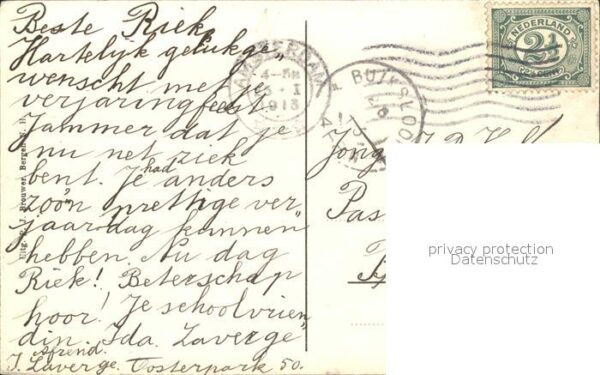 Beste Riek,
Hartelyk gelukge„
wenscht met je
verjaringfeest
Jammer dat je
nu net ziek
bent. Je had anders
zoo'n prettige ver
jaardag kunnen
hebben. Nu dag
Riek! Beterschap
hoor! Je schoolvrien„
din. Ida Laverge
Afzend.
I. Laverge. Oosterpark 50.
Uitg. Brouwer, Bergen N. H.
AMSTERDAM
4-5N
1913
BUIKSLOOT
NEDERLAND
2½
Jong
privacy protection
Datenschutz